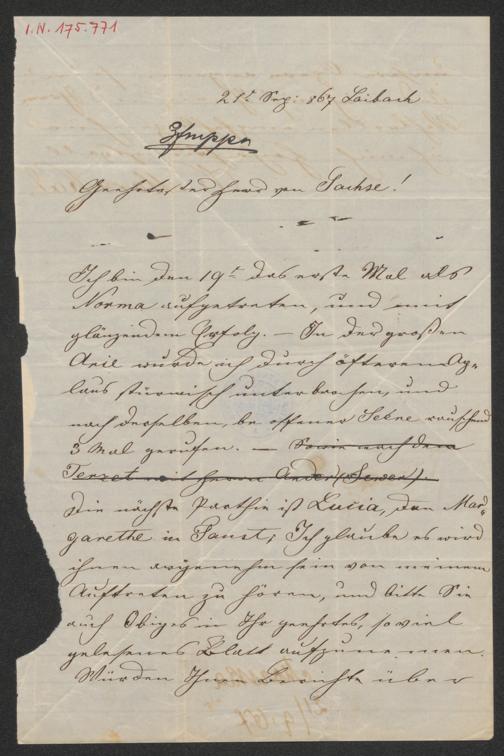 I.N. 175.771
21t Sep: 867 Laibach
Geehrtester Herr von Sachse!
Ich bin den 19t das erste Mal als
Norma aufgetreten, und mit
glänzendem Erfolg. — In der großen
Arie wurde ich durch öfteren Ap-
laus stürmisch unterbrochen, und
nach derselben, be offener Sekne rauschend
3 Mal gerufen. — Sowie nach dem
Terzet mit Herrn Ander (Sewer).
Die nächste Parthie ist Lucia, dan Mar-
garethe in Faust, Ich glaube es wird
ihnen angenehm sein von meinem
Auftreten zu hören, und bitte Sie
auch Obiges in Ihr geehrtes, so viel
gelesenes Blatt aufzunemen.
Würden Ihnen Berichte über